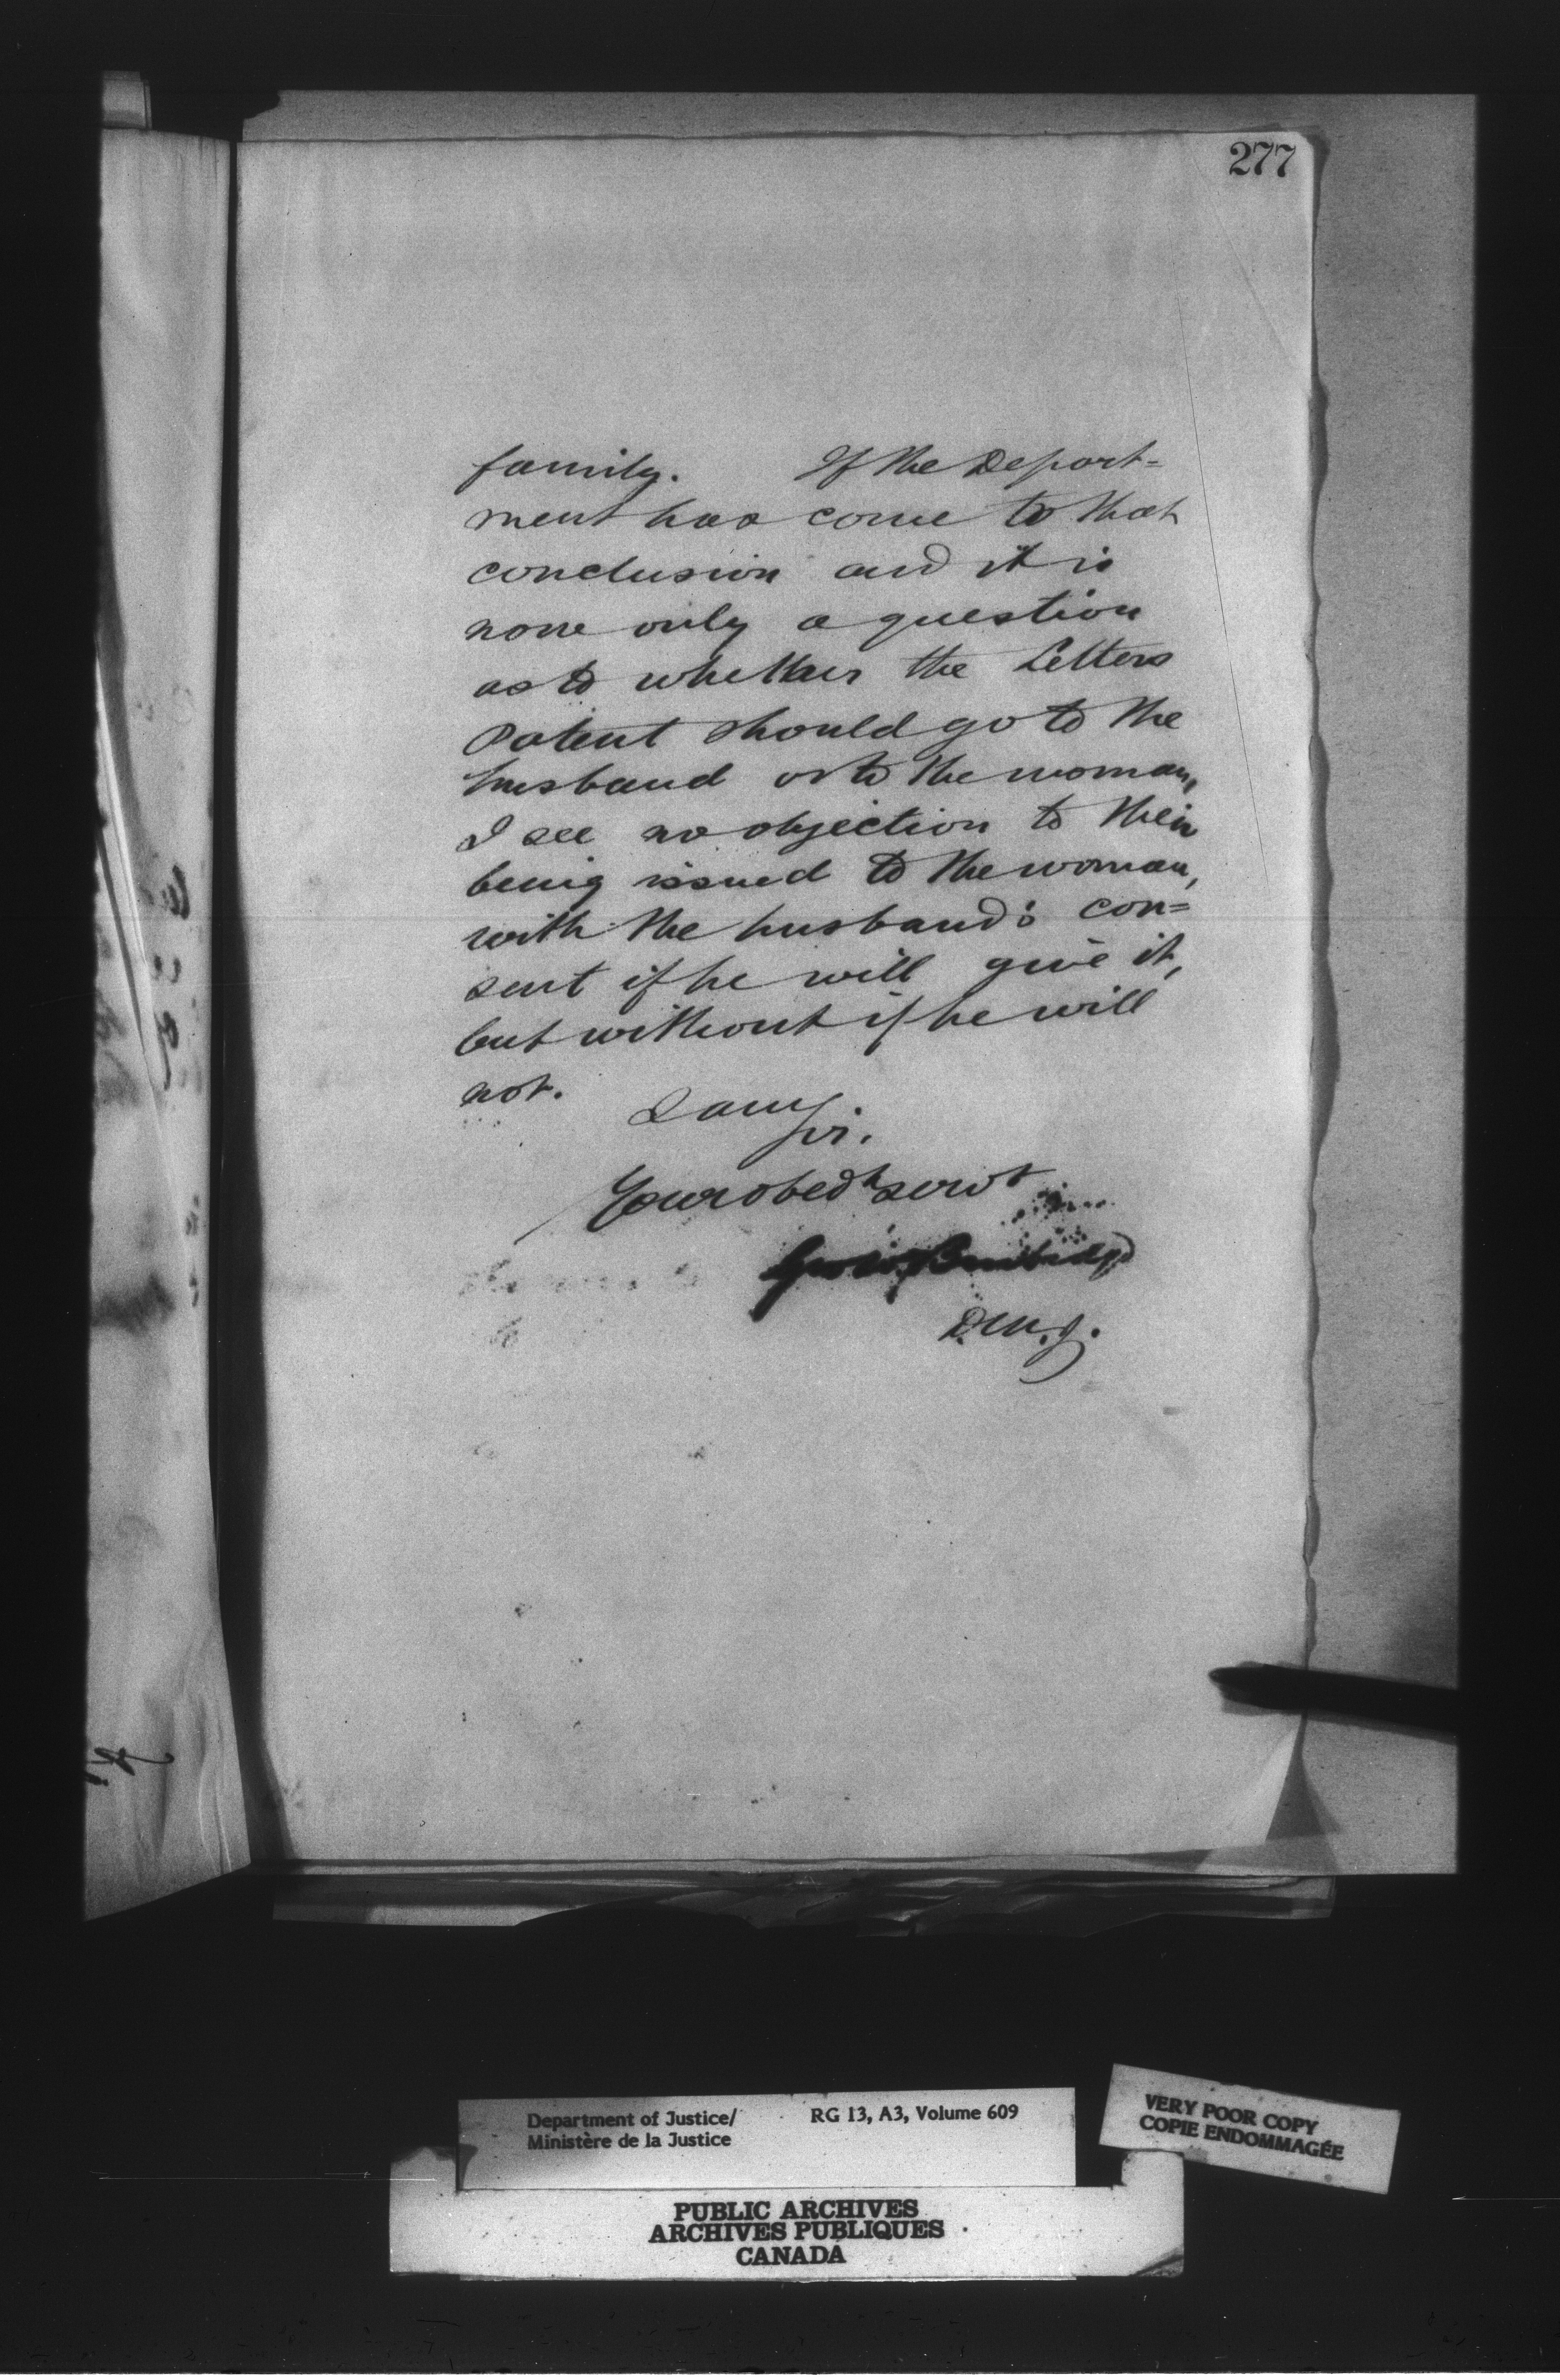 277
family. If the Depart=
ment has come to that
conclusion and it is
now only a question
as to whether the Letters
Patent should go to the
husband or to the woman,
I see no objection to their
being issued to the woman,
with the husband's con=
sent if he will give it,
but without if he will
not.
I am
Sir.
Your obedt servt
Geo. W. Burbidge
D.M.J.
Department of Justice/ RG 13, A3, Volume 609
Ministère de la Justice
VERY POOR COPY
COPIE ENDOMMAGÉE
PUBLIC ARCHIVES
ARCHIVES PUBLIQUES
CANADA